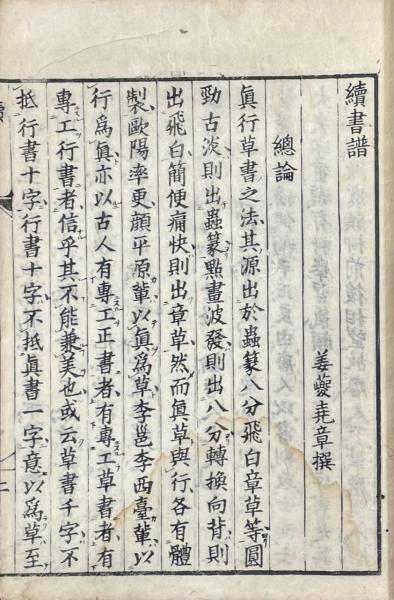 續書譜
姜夔堯章撰
總論
眞行草書之法其源出於蟲篆八分飛白章草等圓
勁古淡則出蟲篆點畫波發則出八分轉換向背則
出飛白簡便痛快則出章草然而眞草與行各有體
製歐陽率更顏平原輩以眞爲草李邕李西臺輩以
行爲眞亦以古人有專工正書者有專工草書者有
專工行書者信乎其不能兼美也或云草書千字不
抵行書十字行書十字不抵眞書一字意以爲草至